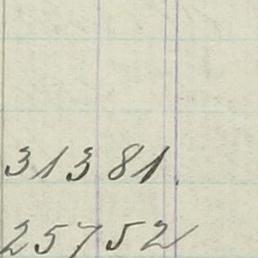 31381.
25752